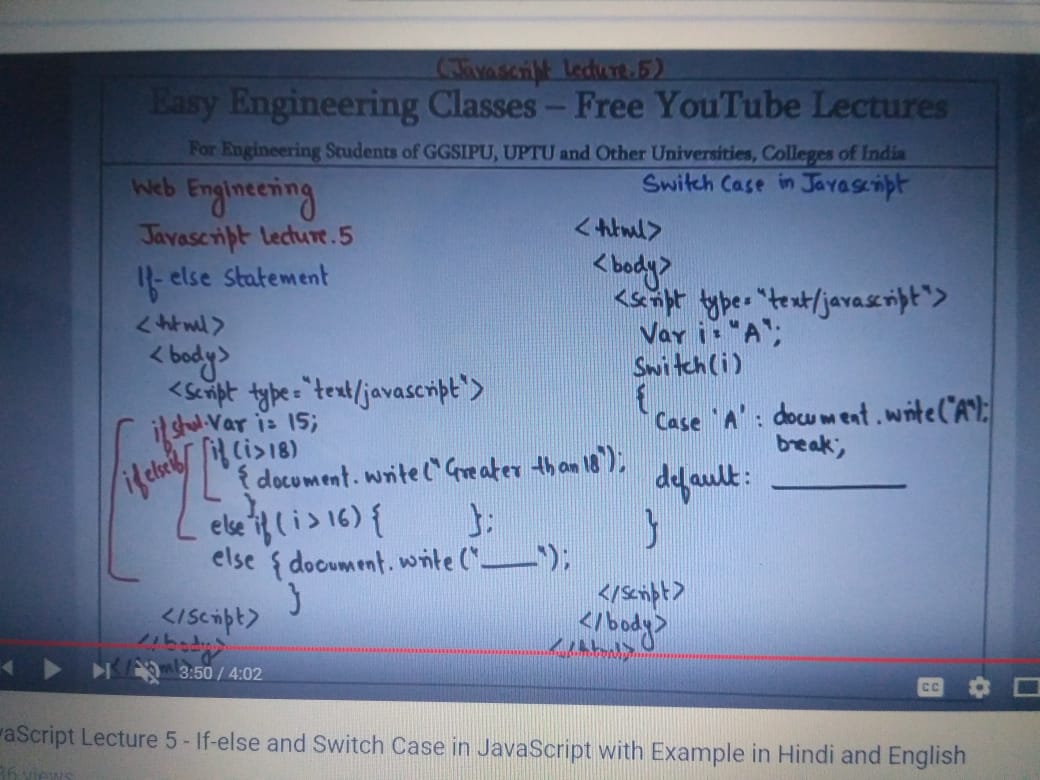 (Javascript Lecture.5)
Easy Engineering Classes – Free YouTube Lectures
For Engineering Students of GGSIPU, UPTU and Other Universities, Colleges of India
Web Engineering
Javascript Lecture.5
If-else statement
<html>
<body>
<script type="text/javascript">
Var i= 15;
if (i>18)
{ document.write("Greater than 18");
}
else if (i > 16) { };
else { document.write("____");
}
</script>
</body>
</html>
if else if
Switch Case in Javascript
<html>
<body>
<script type="text/javascript">
Var i= "A";
Switch(i)
{
Case 'A' : document.write("A");
break;
default: ________
}
</script>
</body>
</html>
3:50 / 4:02
CC
vaScript Lecture 5 - If-else and Switch Case in JavaScript with Example in Hindi and English
36 views